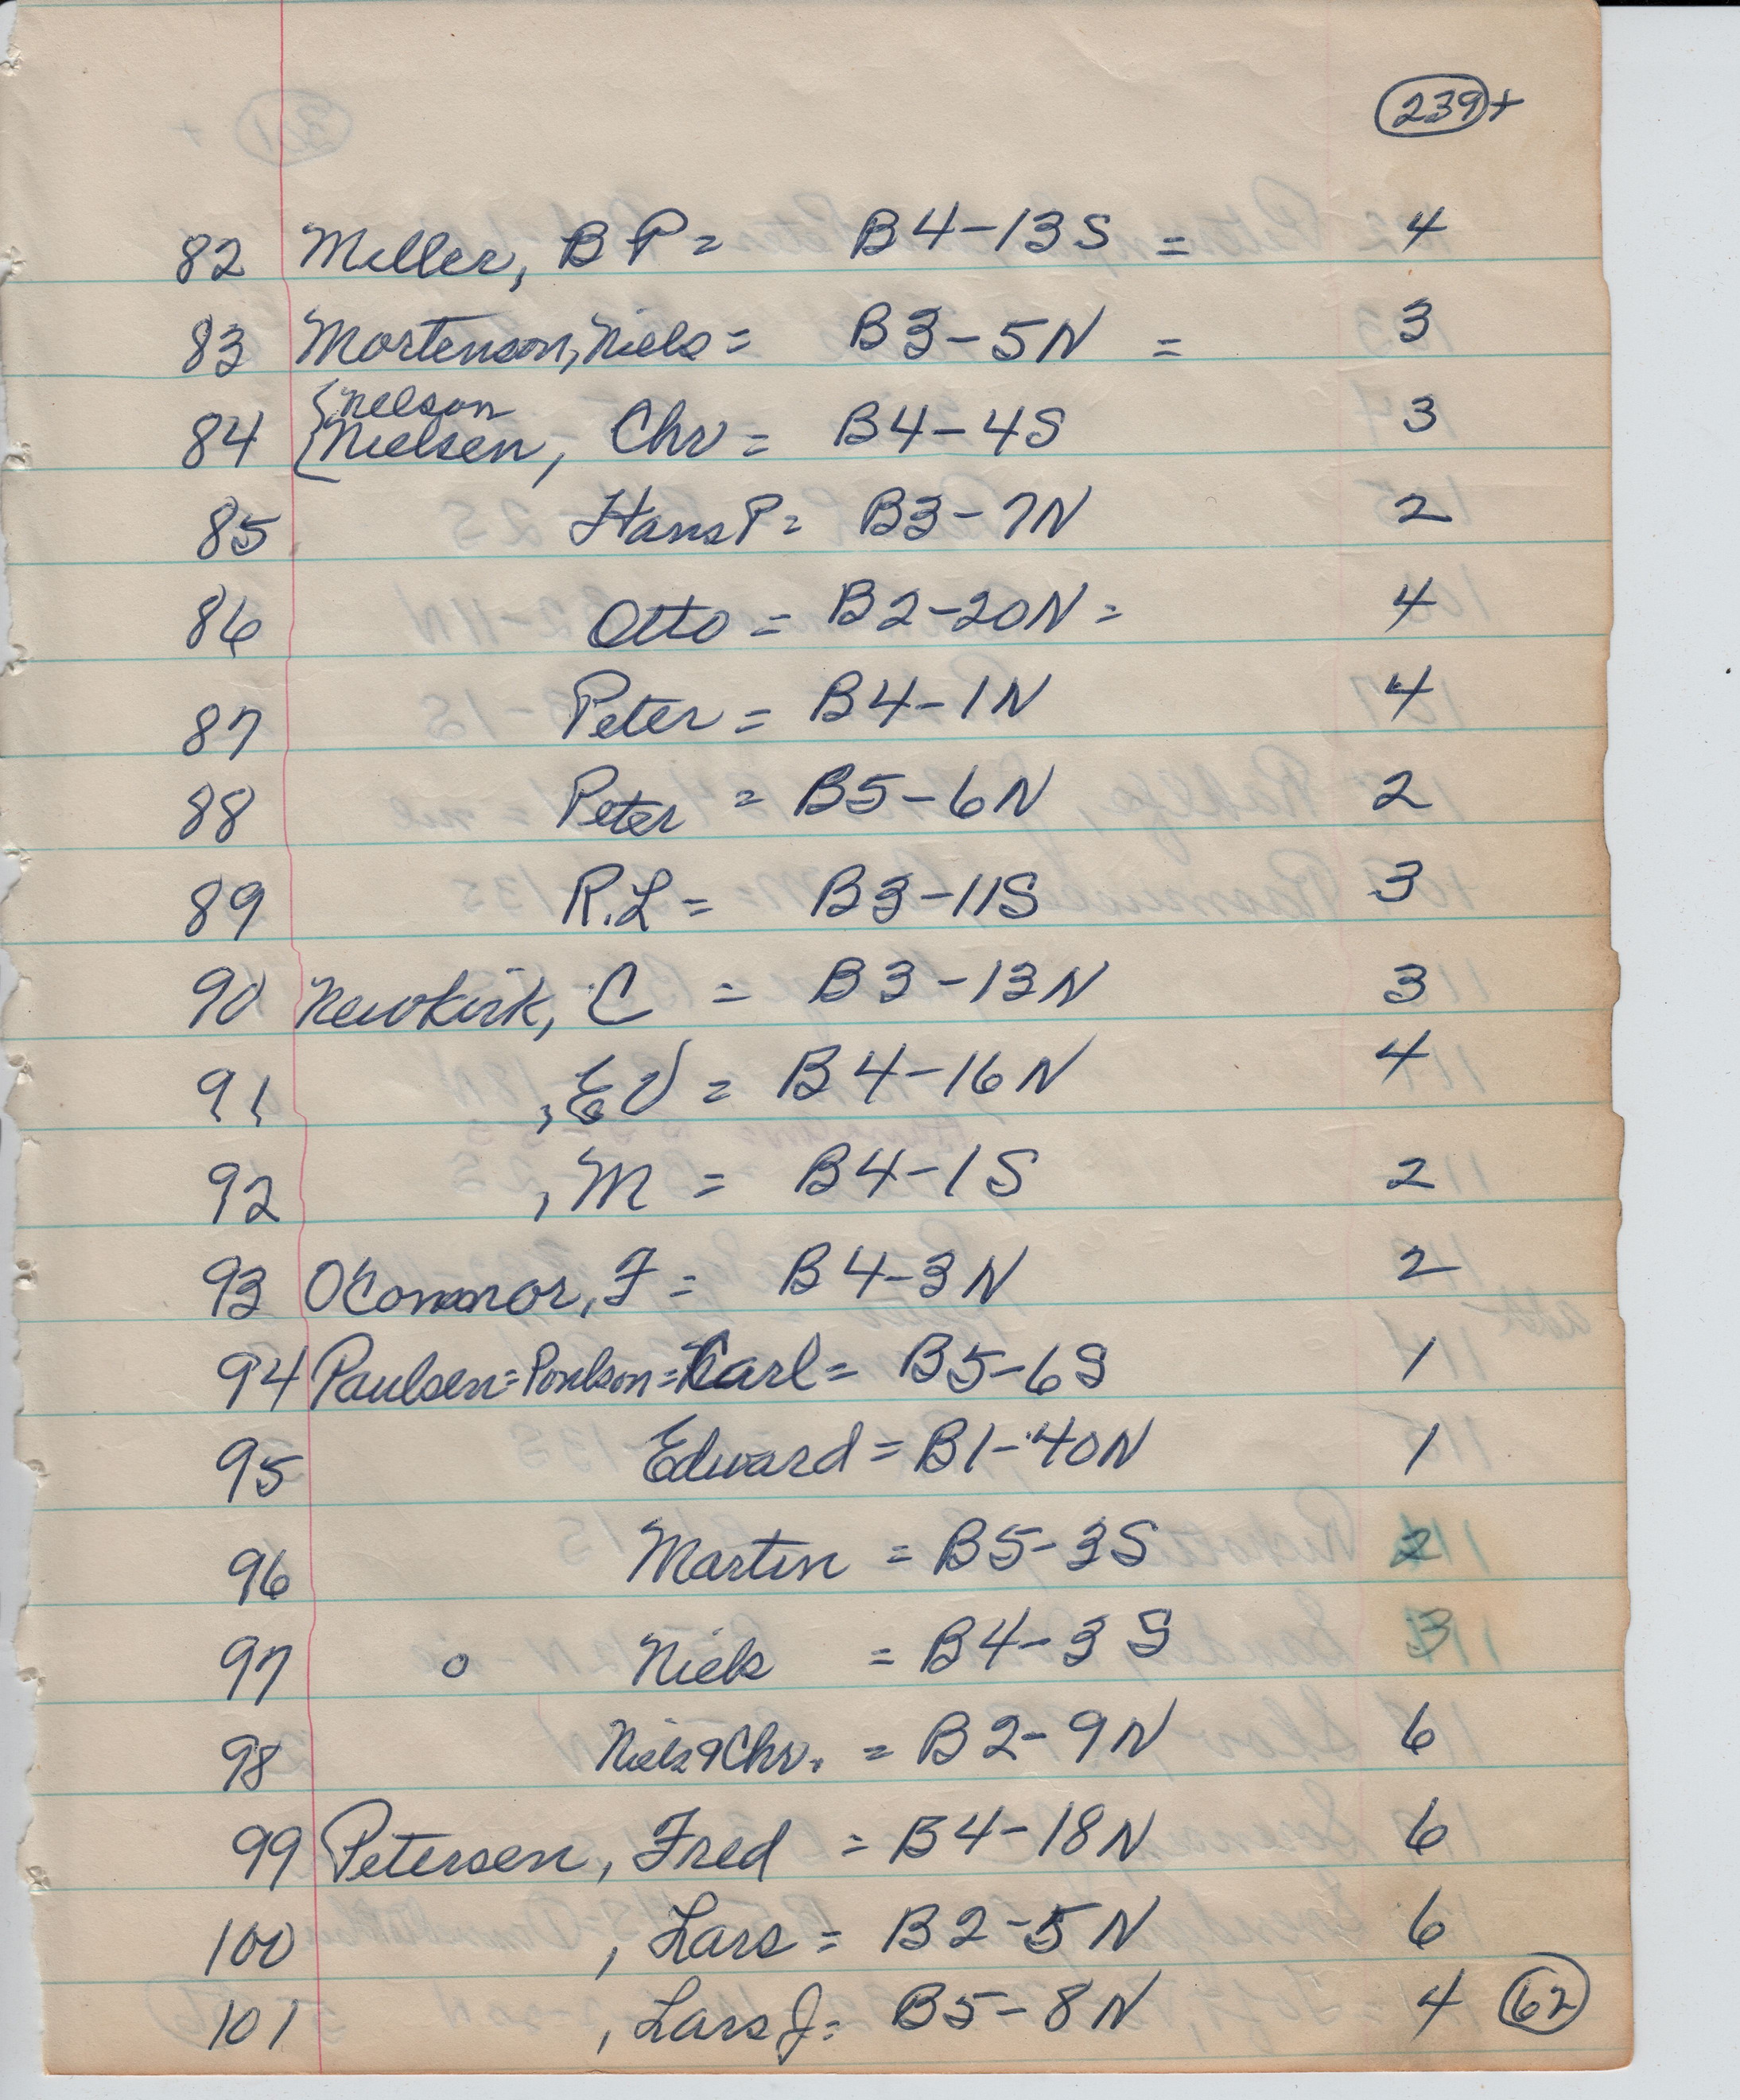 239+
82 Miller, B P = B4-13S = 4
83 Mortenson, Niels = B3-5N = 3
{Nelson
84 {Nielsen, Chr = B4-4S 3
85 Hans P = B3-7N 2
86 Otto = B2-20N = 4
87 Peter = B4-1N 4
88 Peter = B5-6N 2
89 R.L = B3-11S 3
90 Newkirk, C = B3-13N 3
91 , EV = B4-16N 4
92 , M = B4-1S 2
93 O'Connor, F = B4-3N 2
94 Paulsen = Poulson = Carl = B5-6S 1
95 Edward = B1-40N 1
96 Martin = B5-3S 2
97 o Niels = B4-3S 3
98 Niels & Chr. = B2-9N 6
99 Petersen, Fred = B4-18N 6
100 , Lars = B2-5N 6
101 , Lars J = B5-8N 4 62